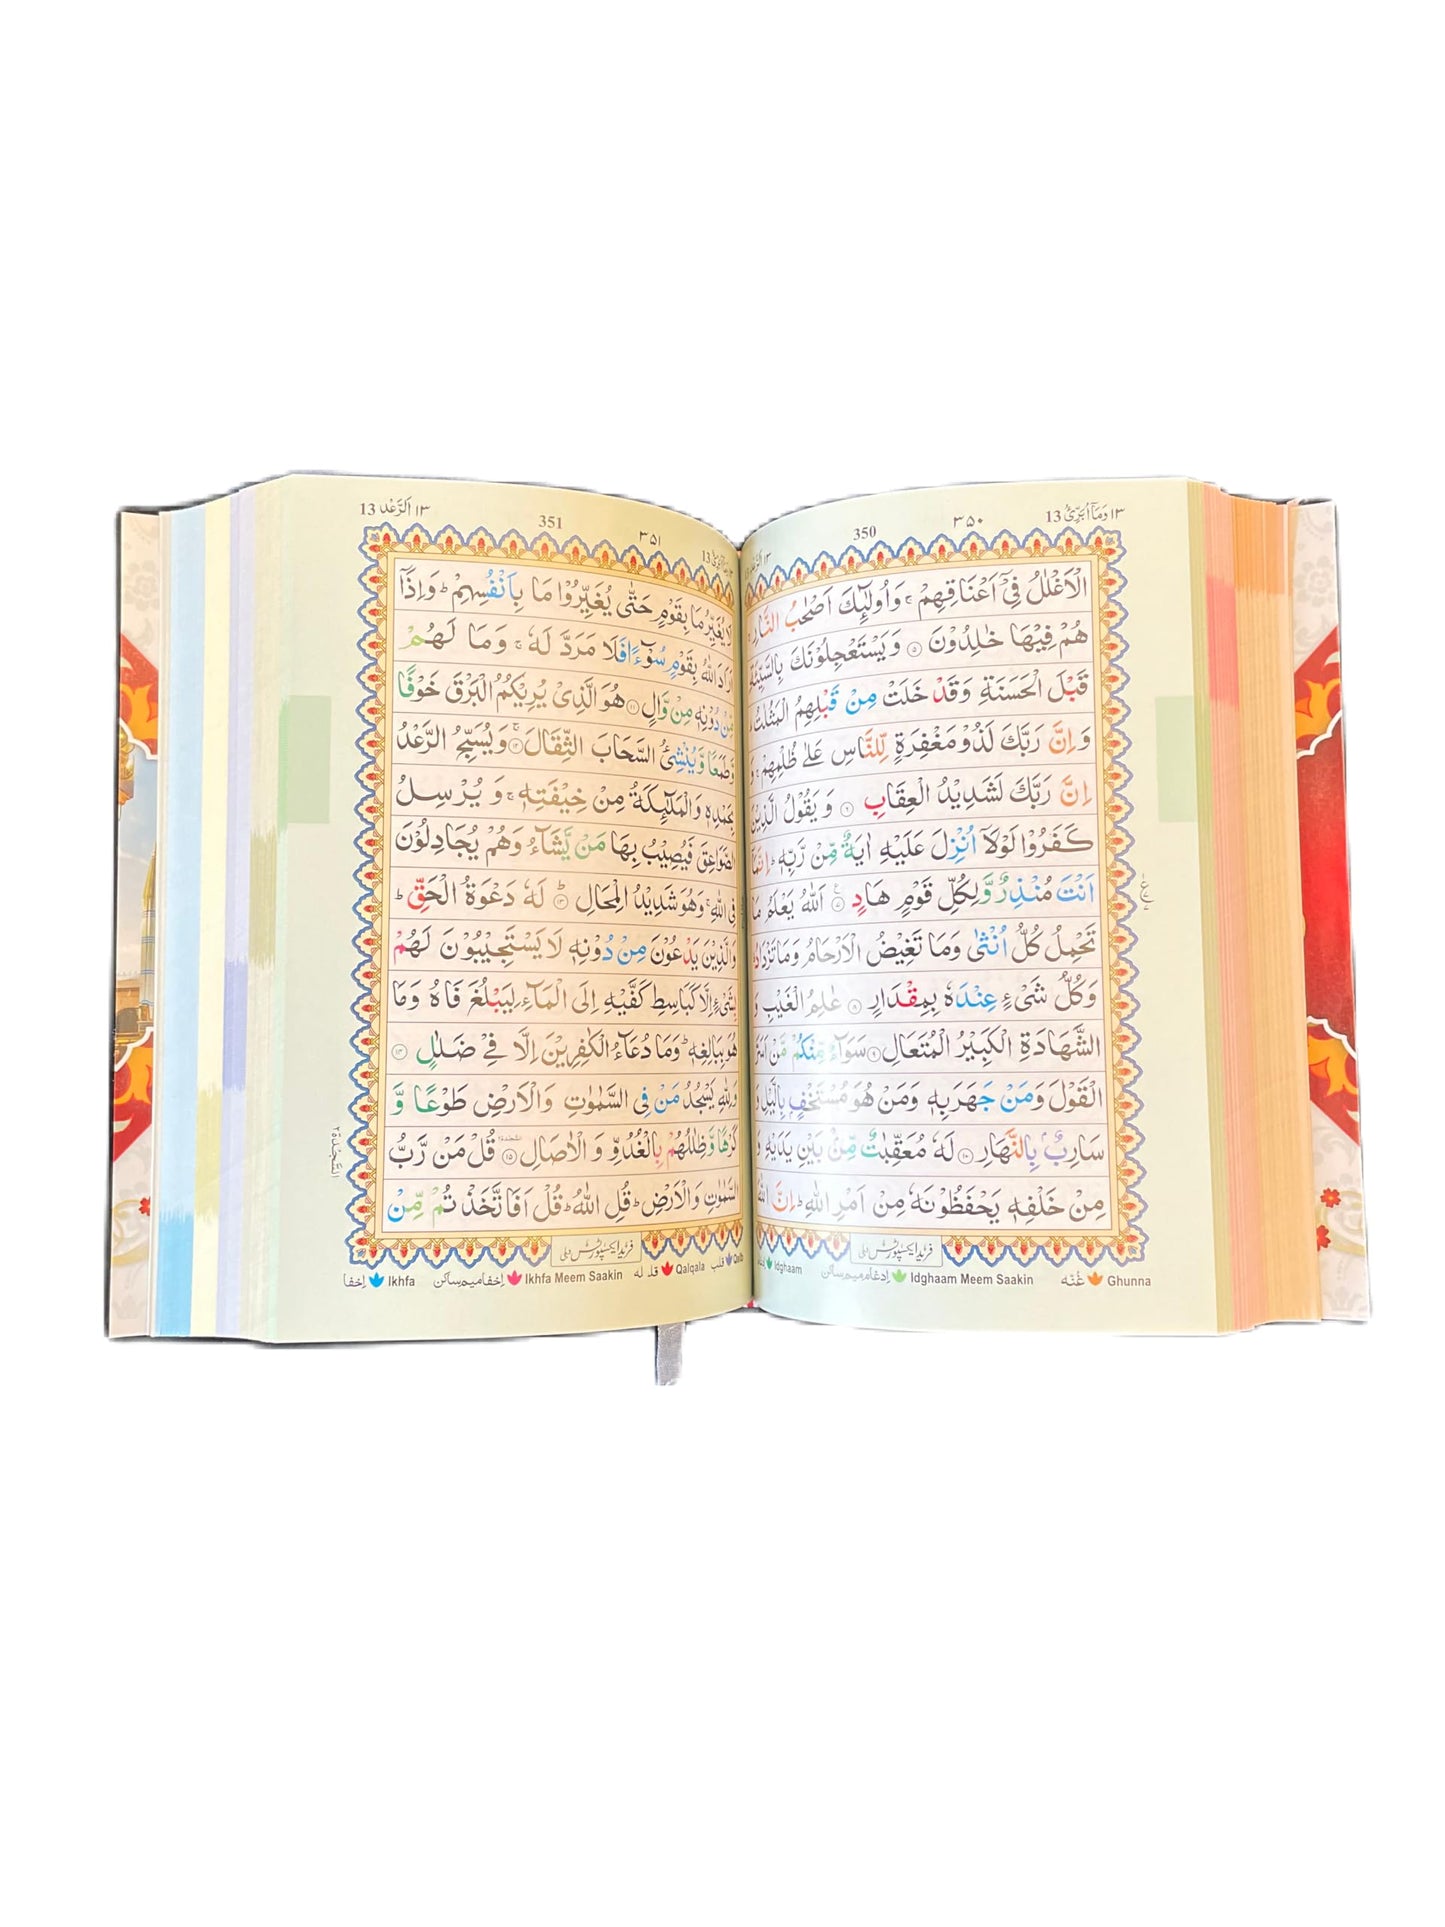 ۱۳ وَمَاۤ اُبَرِّئُ 13
۳۵۰
350
الْاَغْلٰلُ فِیْۤ اَعْنَاقِهِمْ ۚ وَاُولٰٓئِكَ اَصْحٰبُ النَّارِ ۚ
هُمْ فِیْهَا خٰلِدُوْنَ ۵ وَیَسْتَعْجِلُوْنَكَ بِالسَّیِّئَةِ
قَبْلَ الْحَسَنَةِ وَقَدْ خَلَتْ مِنْ قَبْلِهِمُ الْمَثُلٰتُ
وَاِنَّ رَبَّكَ لَذُوْ مَغْفِرَةٍ لِّلنَّاسِ عَلٰی ظُلْمِهِمْ ۚ وَ
اِنَّ رَبَّكَ لَشَدِیْدُ الْعِقَابِ ۶ وَیَقُوْلُ الَّذِیْنَ
كَفَرُوْا لَوْلَاۤ اُنْزِلَ عَلَیْهِ اٰیَةٌ مِّنْ رَّبِّهٖ ؕ اِنَّمَاۤ
اَنْتَ مُنْذِرٌ وَّلِكُلِّ قَوْمٍ هَادٍ ۷ اَللّٰهُ یَعْلَمُ مَا
تَحْمِلُ كُلُّ اُنْثٰی وَمَا تَغِیْضُ الْاَرْحَامُ وَمَا تَزْدَادُ
وَكُلُّ شَیْءٍ عِنْدَهٗ بِمِقْدَارٍ ۸ عٰلِمُ الْغَیْبِ وَ
الشَّهَادَةِ الْكَبِیْرُ الْمُتَعَالِ ۹ سَوَآءٌ مِّنْكُمْ مَّنْ اَسَرَّ
الْقَوْلَ وَمَنْ جَهَرَ بِهٖ وَمَنْ هُوَ مُسْتَخْفٍۭ بِالَّیْلِ وَ
سَارِبٌۢ بِالنَّهَارِ ۱۰ لَهٗ مُعَقِّبٰتٌ مِّنْۢ بَیْنِ یَدَیْهِ وَ
مِنْ خَلْفِهٖ یَحْفَظُوْنَهٗ مِنْ اَمْرِ اللّٰهِ ؕ اِنَّ اللّٰهَ
فرید ایکسپورٹس دہلی
Ghunna غُنّه
Idghaam Meem Saakin اِدغام میم ساکن
Idghaam
۱۳ اَلرَّعْد 13
351
۳۵۱
لَا یُغَیِّرُ مَا بِقَوْمٍ حَتّٰی یُغَیِّرُوْا مَا بِاَنْفُسِهِمْ ؕ وَاِذَاۤ
اَرَادَ اللّٰهُ بِقَوْمٍ سُوْٓءًا فَلَا مَرَدَّ لَهٗ ۚ وَمَا لَهُمْ
مِّنْ دُوْنِهٖ مِنْ وَّالٍ ۱۱ هُوَ الَّذِیْ یُرِیْكُمُ الْبَرْقَ خَوْفًا
وَّطَمَعًا وَّیُنْشِئُ السَّحَابَ الثِّقَالَ ۱۲ وَیُسَبِّحُ الرَّعْدُ
بِحَمْدِهٖ وَالْمَلٰٓئِكَةُ مِنْ خِیْفَتِهٖ ۚ وَیُرْسِلُ
الصَّوَاعِقَ فَیُصِیْبُ بِهَا مَنْ یَّشَآءُ وَهُمْ یُجَادِلُوْنَ
فِی اللّٰهِ ۚ وَهُوَ شَدِیْدُ الْمِحَالِ ۱۳ لَهٗ دَعْوَةُ الْحَقِّ ؕ
وَالَّذِیْنَ یَدْعُوْنَ مِنْ دُوْنِهٖ لَا یَسْتَجِیْبُوْنَ لَهُمْ
بِشَیْءٍ اِلَّا كَبَاسِطِ كَفَّیْهِ اِلَی الْمَآءِ لِیَبْلُغَ فَاهُ وَمَا
هُوَ بِبَالِغِهٖ ؕ وَمَا دُعَآءُ الْكٰفِرِیْنَ اِلَّا فِیْ ضَلٰلٍ ۱۴
وَلِلّٰهِ یَسْجُدُ مَنْ فِی السَّمٰوٰتِ وَالْاَرْضِ طَوْعًا وَّ
كَرْهًا وَّظِلٰلُهُمْ بِالْغُدُوِّ وَالْاٰصَالِ ۱۵ قُلْ مَنْ رَّبُّ
السَّمٰوٰتِ وَالْاَرْضِ ؕ قُلِ اللّٰهُ ؕ قُلْ اَفَاتَّخَذْتُمْ مِّنْ
السَّجْدَة ۲
فرید ایکسپورٹس دہلی
Qalb قلب
Qalqala قلقله
Ikhfa Meem Saakin اِخفا میم ساکن
Ikhfa اِخفا